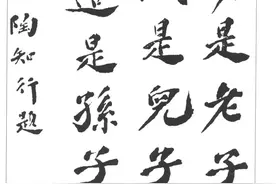 是老子
是兒子
是孫子
陶知行題